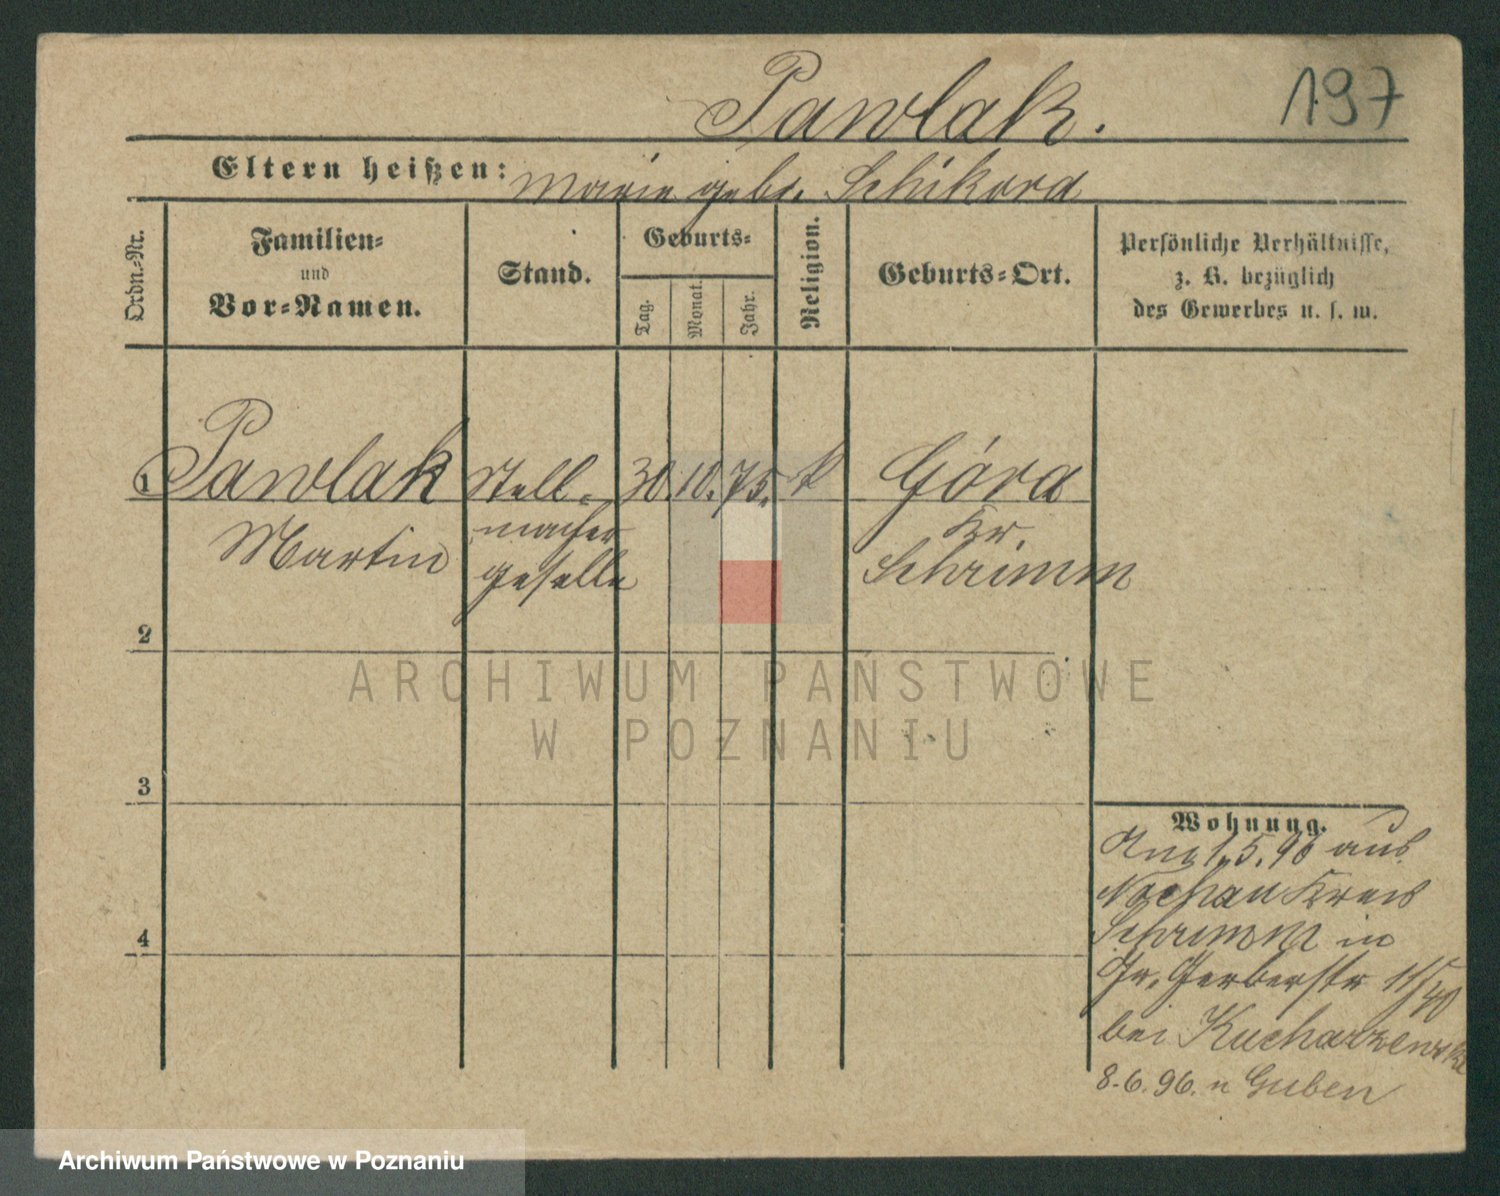 Pawlak.
197
Eltern heißen: Marie gebr. Schikora
Ordn.-Nr.
Familien-
und
Vor-Namen.
Stand.
Geburts-
Tag.
Monat.
Jahr.
Religion.
Geburts-Ort.
Persönliche Verhältnisse,
z. B. bezüglich
des Gewerbes u. s. w.
1 Pawlak Stell- 30. 10. 75. k Góra
Martin macher Kr.
geselle Schrimm
2
3
4
Wohnung.
1.5.96 aus
Nochau Kreis
Schrimm in
Gr. Gerberstr
bei Kucharzewski
8.6.96. n Guben
ARCHIWUM PAŃSTWOWE
W POZNANIU
Archiwum Państwowe w Poznaniu